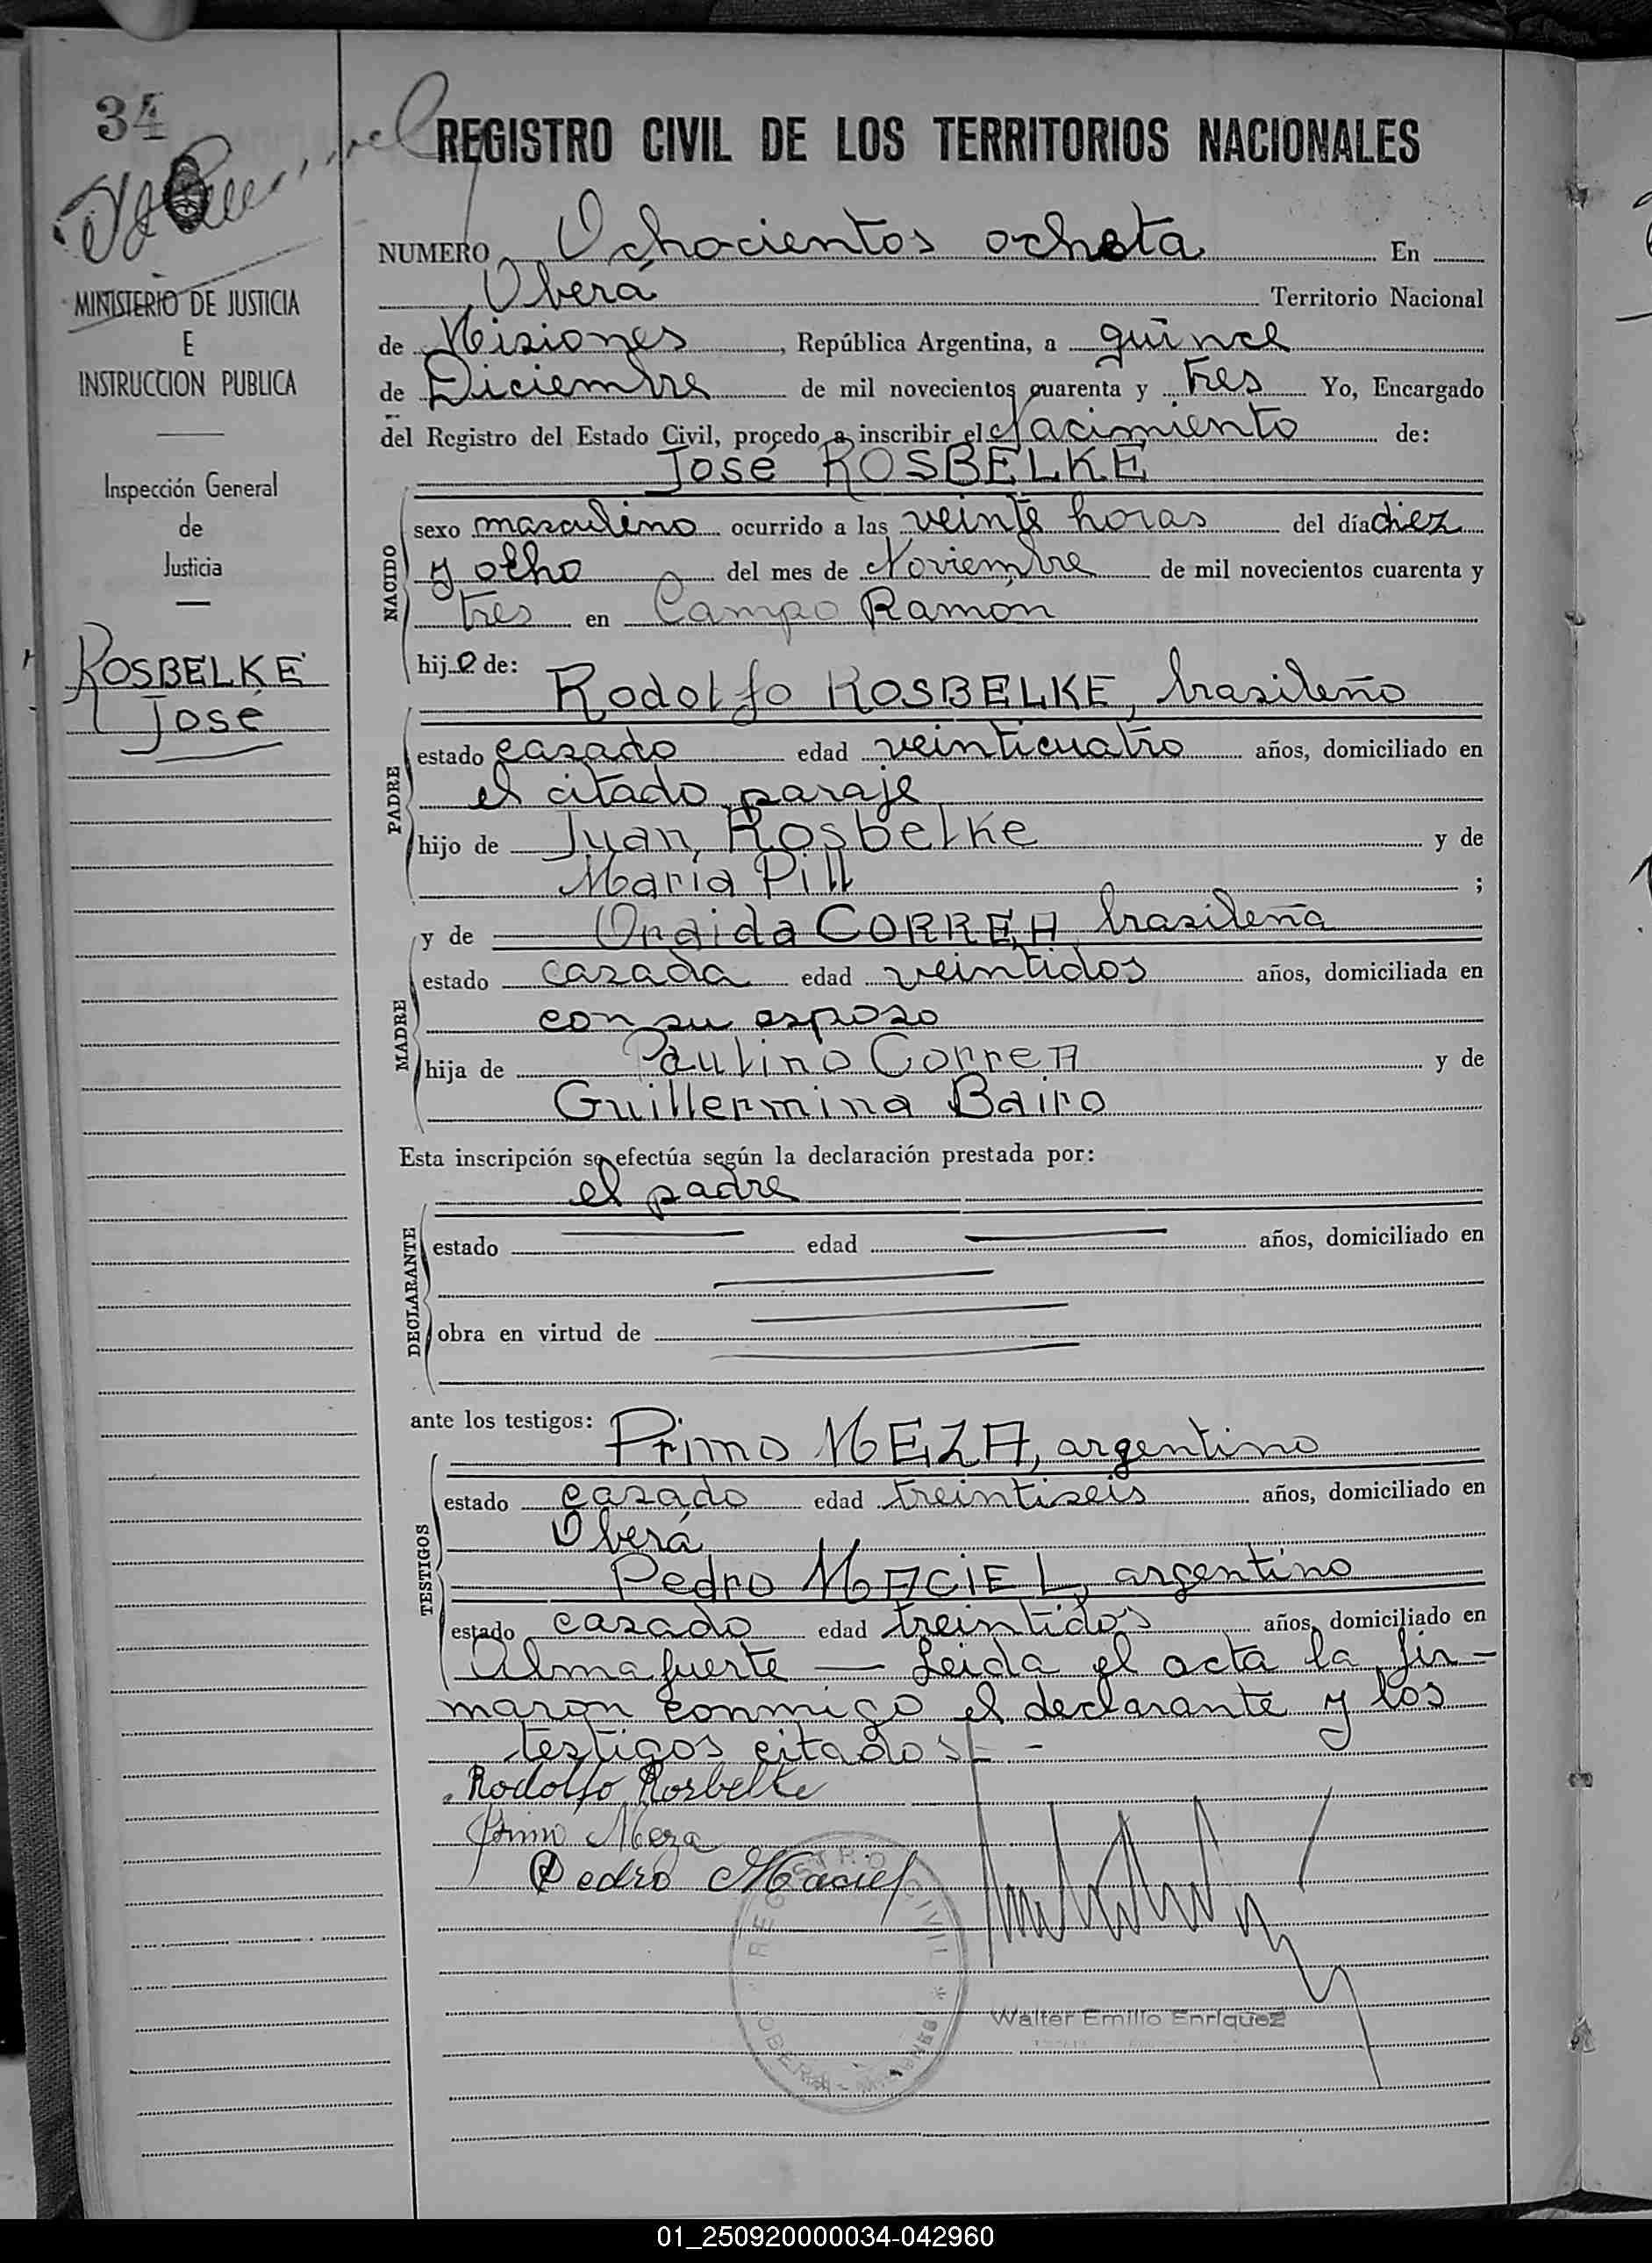 34
REGISTRO CIVIL DE LOS TERRITORIOS NACIONALES
NUMERO Ochocientos ocheta En
Oberá Territorio Nacional
de Misiones, República Argentina, a quince
de Diciembre de mil novecientos cuarenta y tres Yo, Encargado
del Registro del Estado Civil, procedo a inscribir el Nacimiento de:
José ROSBELKE
NACIDO
sexo masculino ocurrido a las veinte horas del día diez
y ocho del mes de Noviembre de mil novecientos cuarenta y
tres en Campo Ramón
hijo de:
Rodolfo ROSBELKE, brasileño
PADRE
estado casado edad veinticuatro años, domiciliado en
el citado paraje
hijo de Juan Rosbelke y de
María Pill ;
y de Onaida CORREA brasileña
MADRE
estado casada edad veintidos años, domiciliada en
con su esposo
hija de Paulino CorreA y de
Guillermina Bairo
Esta inscripción se efectúa según la declaración prestada por:
el padre
DECLARANTE
estado edad años, domiciliado en
obra en virtud de
ante los testigos:
Primo MEZA, argentino
TESTIGOS
estado casado edad treintiseis años, domiciliado en
Oberá
Pedro MACIEL, argentino
estado casado edad treintidos años, domiciliado en
Almafuerte — Leida el acta la fir-
maron conmigo el declarante y los
testigos citados -
Rodolfo Rosbelke
Primo Meza
Pedro Maciel
REGISTRO CIVIL * OBERA - MISIONES
Walter Emilio Enriquez
MINISTERIO DE JUSTICIA
E
INSTRUCCION PUBLICA
Inspección General
de
Justicia
ROSBELKE
José
01_250920000034-042960